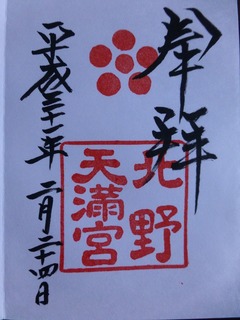 奉拝
北野
天満宮
平成三十一年二月二十四日